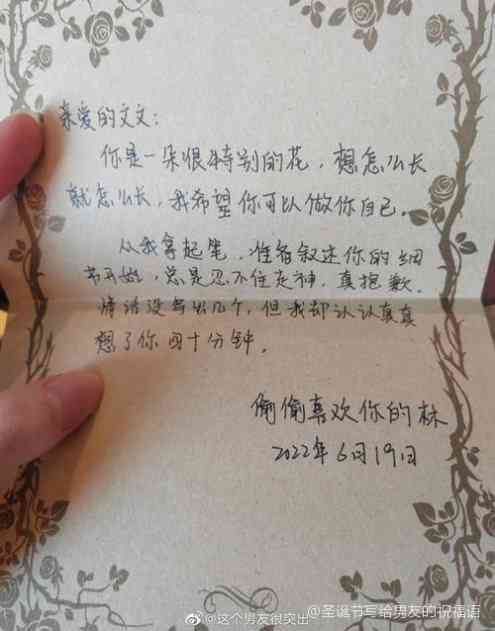 亲爱的文文：
你是一朵很特别的花，想怎么长
就怎么长，我希望你可以做你自己。
从我拿起笔，准备叙述你的细
节开始，总是忍不住走神，真抱歉，
情话没写出几个，但我却认认真真
想了你四十分钟。
偷偷喜欢你的林
2022年6月19日
@这个男友很突出
@圣诞节写给男友的祝福语